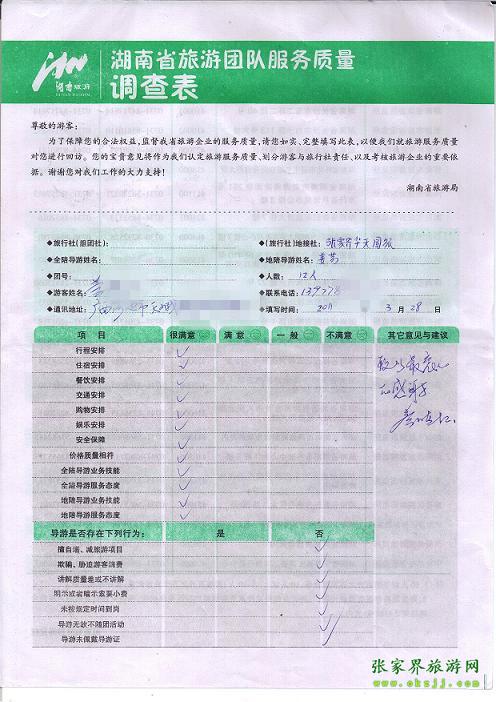 湖南旅游
HUNAN TOURISM
湖南省旅游团队服务质量
调查表
尊敬的游客:
为了保障您的合法权益,监督我省旅游企业的服务质量,请您如实、完整填写此表,以便我们就旅游服务质量
对您进行回访。您的宝贵意见将作为我们认定旅游服务质量、划分游客与旅行社责任、以及考核旅游企业的重要依
据。谢谢您对我们工作的大力支持!
湖南省旅游局
◆旅行社(组团社): ◆(旅行社)地接社: 张家界中天国旅
◆全陪导游姓名: ◆地陪导游姓名:
◆团号: ◆人数: 12人
◆游客姓名: ◆联系电话:
◆通讯地址: ◆填写时间: 2011 3 月 28 日
项 目 很满意 满 意 一 般 不满意 其它意见与建议
行程安排 ✓
住宿安排 ✓
餐饮安排 ✓
交通安排 ✓
购物安排 ✓
娱乐安排 ✓
安全保障 ✓
价格质量相符 ✓
全陪导游业务技能 ✓
全陪导游服务态度 ✓
地陪导游业务技能 ✓
地陪导游服务态度 ✓
导游是否存在下列行为: 是 否
擅自增、减旅游项目 ✓
欺骗、胁迫游客消费 ✓
讲解质量差或不讲解 ✓
明示或者暗示索要小费 ✓
未按规定时间到岗 ✓
导游无故不随团活动 ✓
导游未佩戴导游证 ✓
张家界旅游网
www.oksjj.com